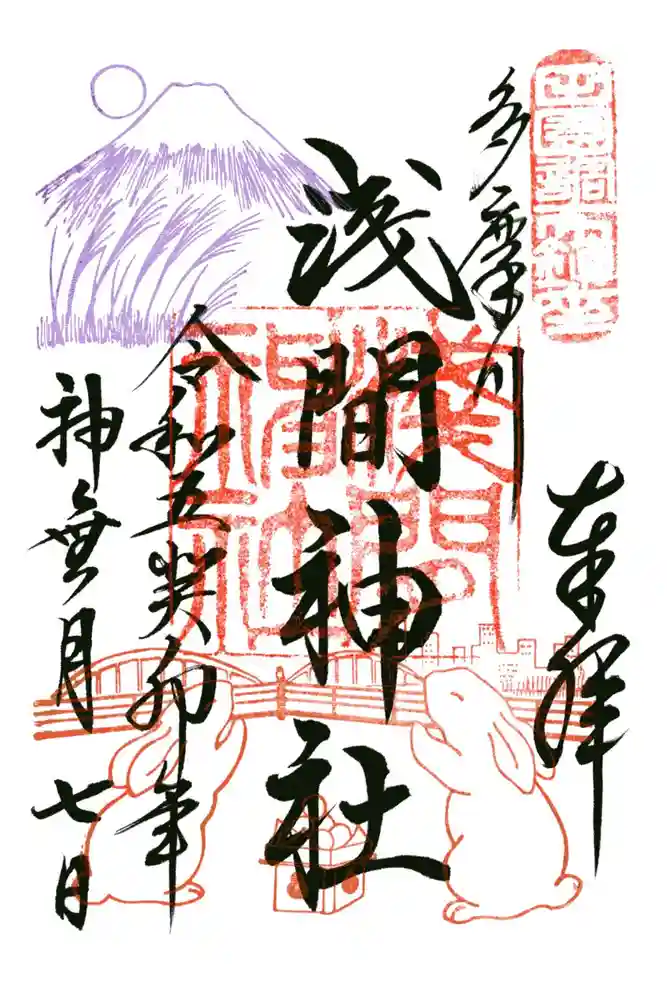 田園調布鎮座
奉拝
多摩川
浅間神社
令和五癸卯年
神無月 七日